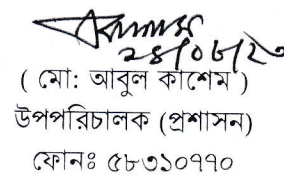 ২৪/০৮/২৩
( মো: আবুল কাশেম )
উপপরিচালক (প্রশাসন)
ফোনঃ ৫৮৩১০৭৭০